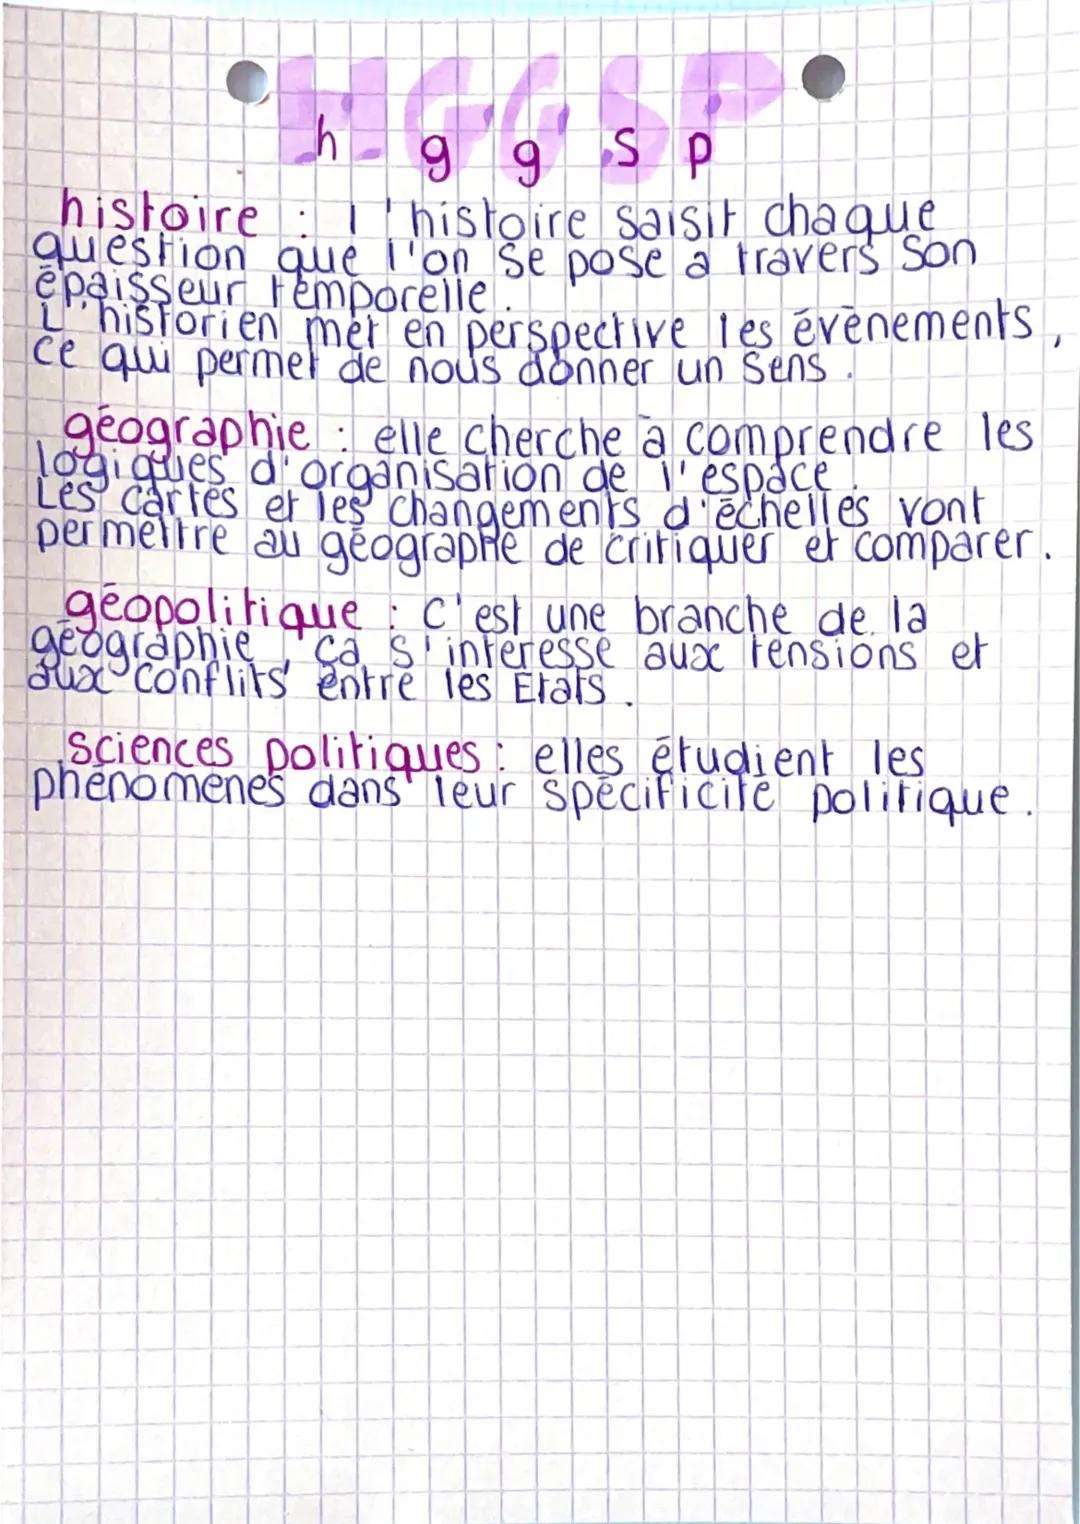 HGGSP
h g g s p
histoire : l'histoire saisit chaque
question que l'on se pose a travers son
épaisseur temporelle.
L'historien met en perspective les évènements,
ce qui permet de nous donner un sens.
géographie : elle cherche à comprendre les
logiques d'organisation de l'espace.
Les cartes et les changements d'échelles vont
permettre au géographe de critiquer et comparer.
géopolitique : c'est une branche de la
géographie, ça s'interesse aux tensions et
aux conflits entre les Etats.
sciences politiques : elles étudient les
phénomènes dans leur spécificité politique.